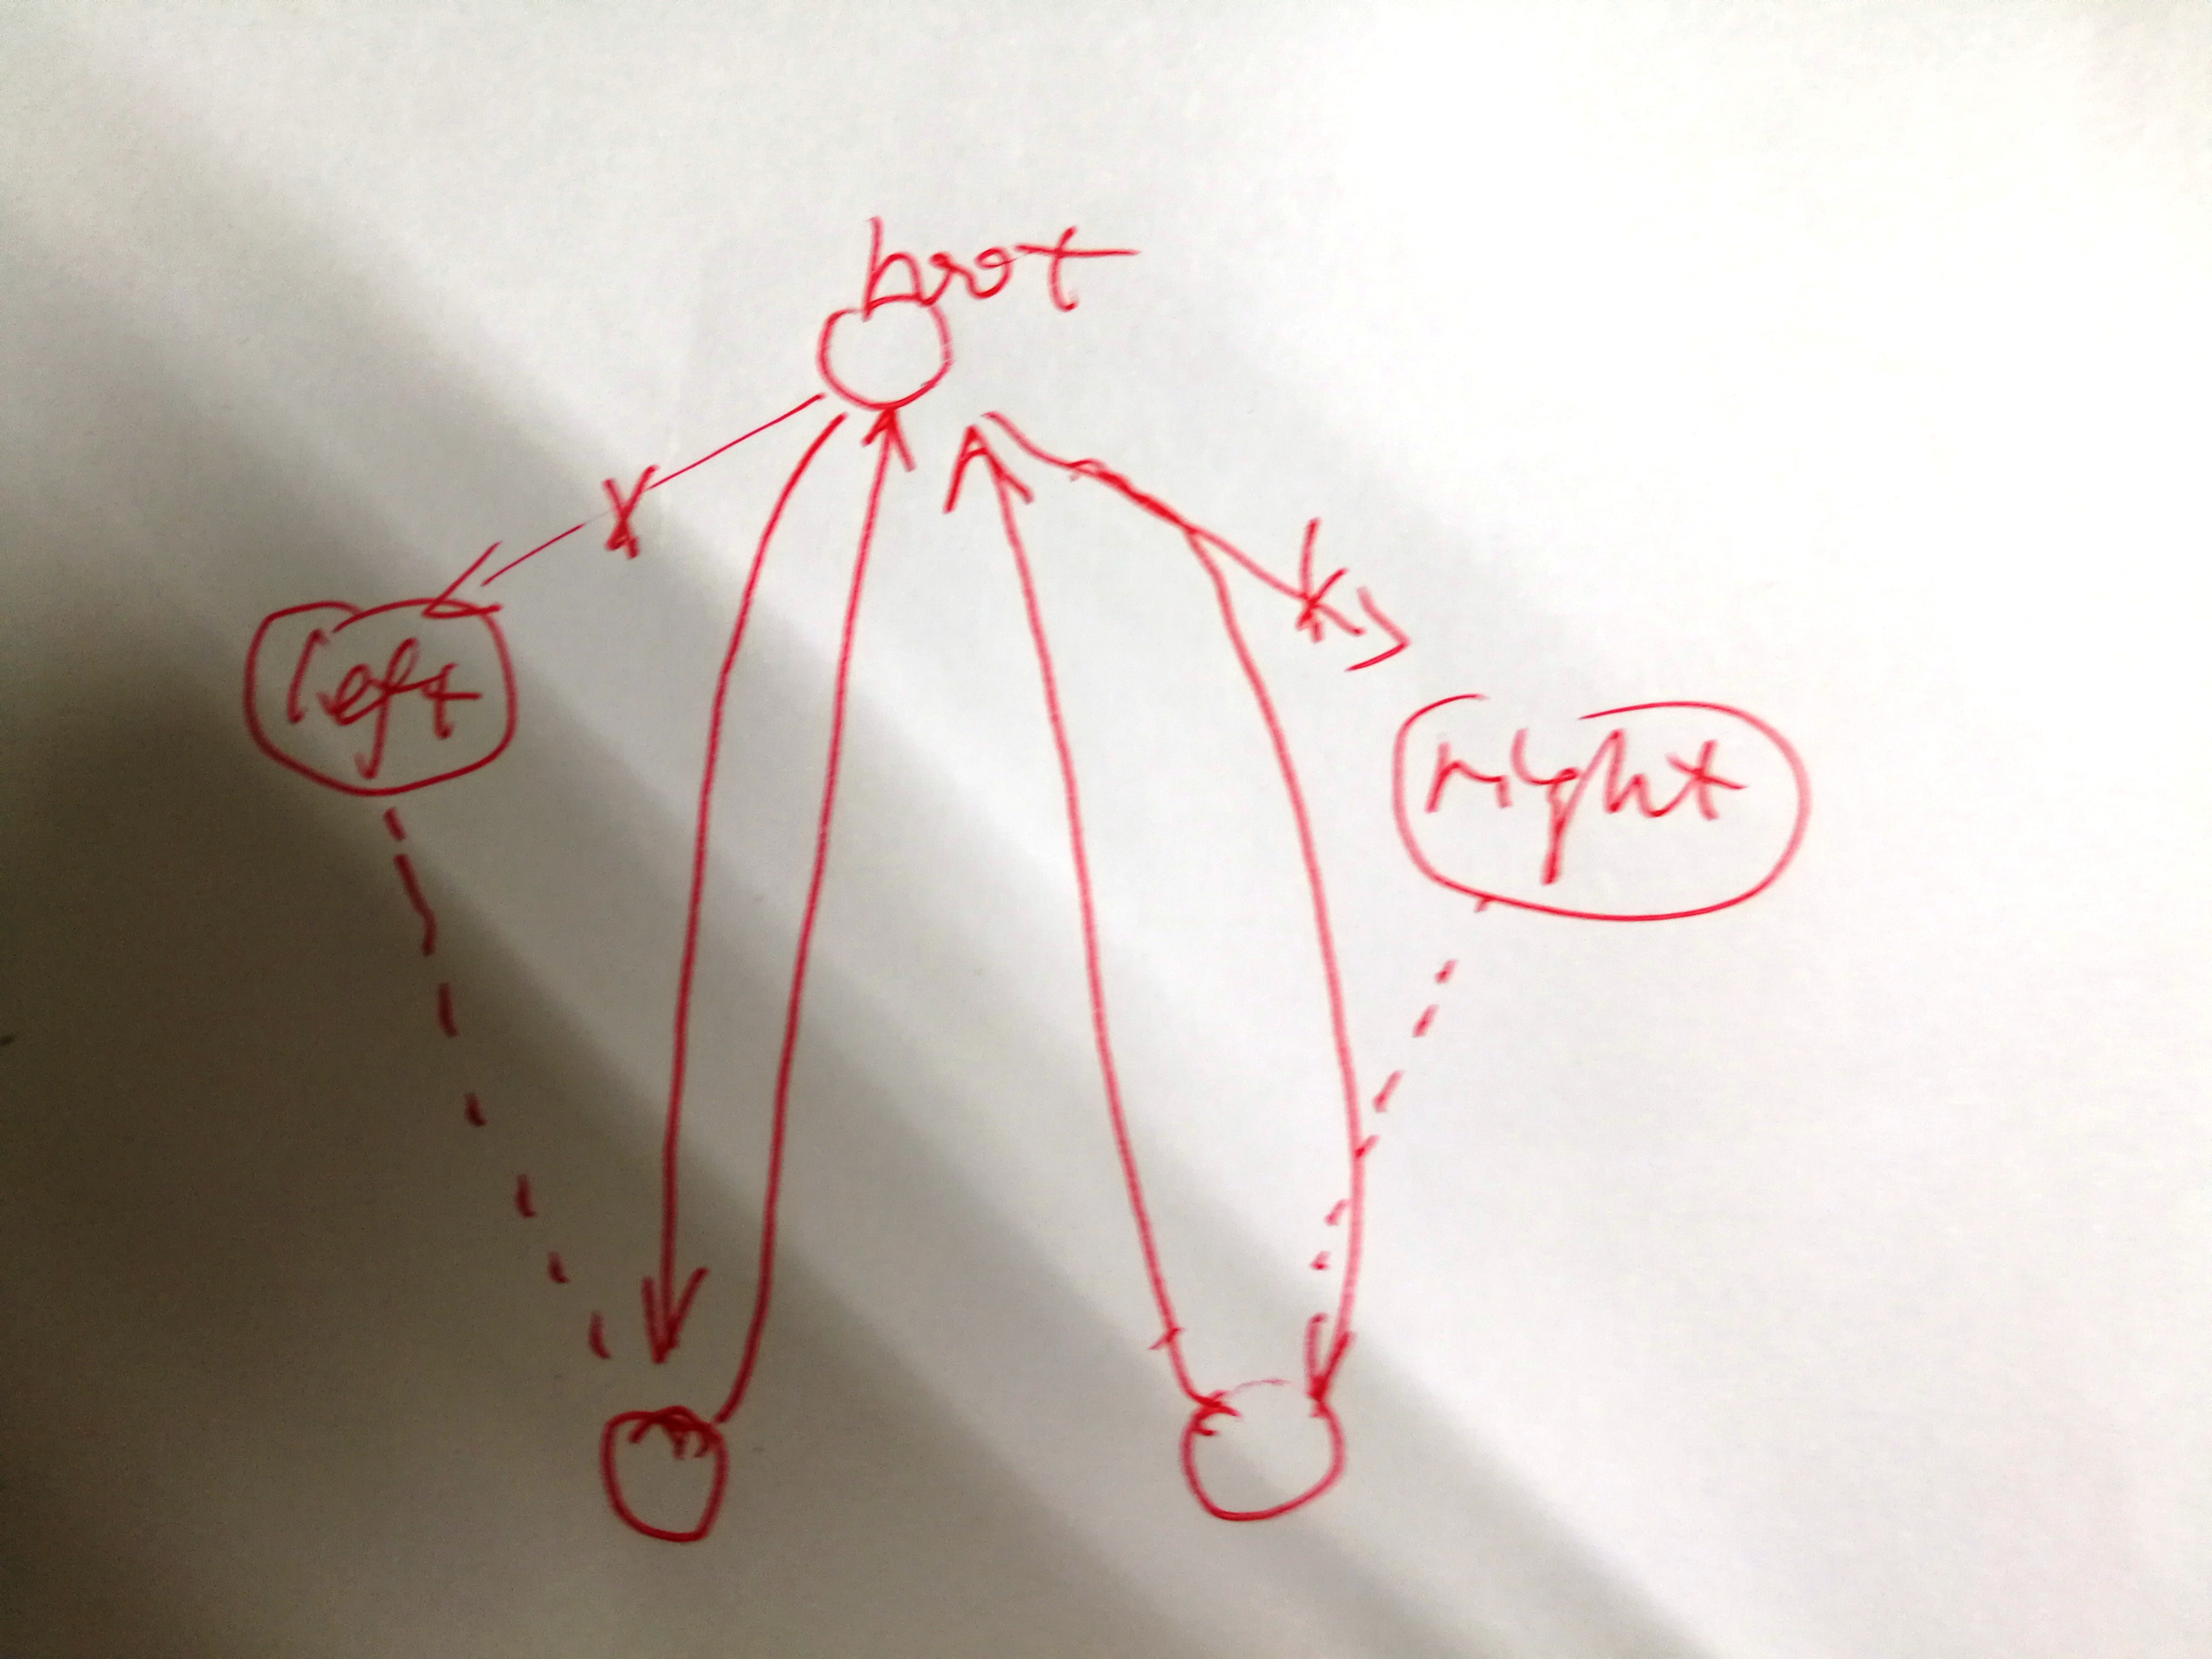 root
left
right